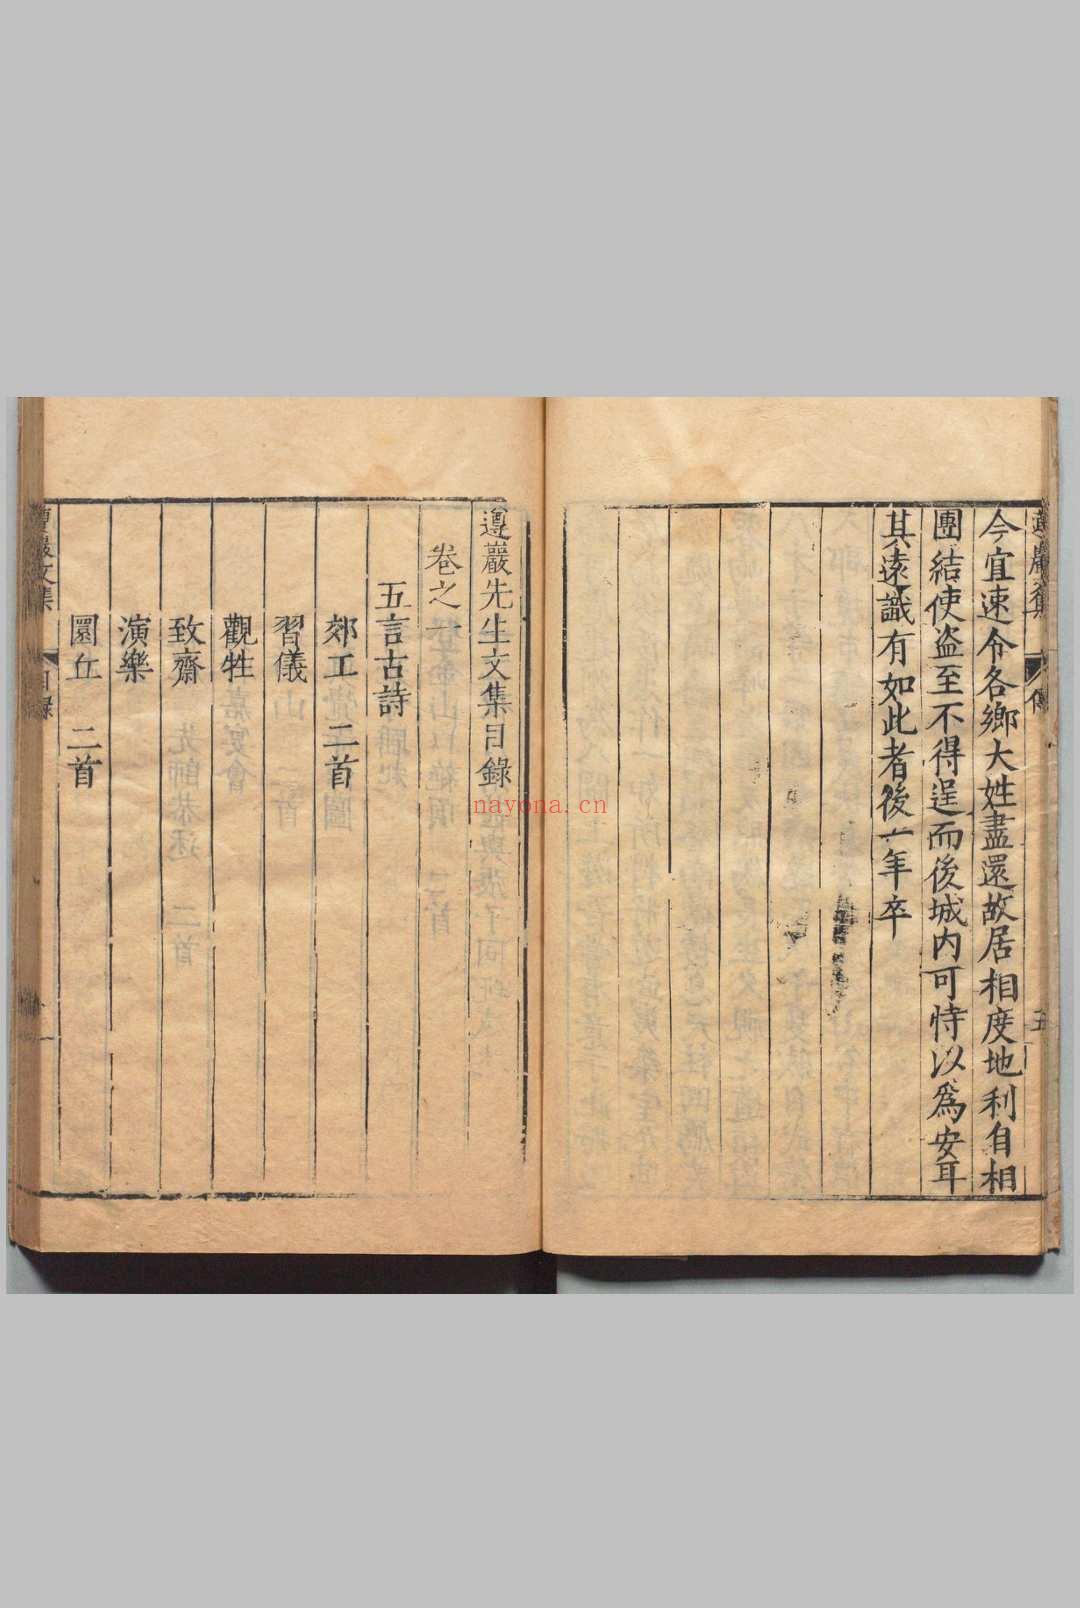 今宜速令各鄉大姓盡還故居相度地利自相
團結使盜至不得逞而後城內可恃以爲安耳
其遠識有如此者後一年卒
遵巖先生文集目錄
卷之
五言古詩
郊工 二首
習儀
觀牲
致齋
演樂
圜丘 二首
目錄
nayona.cn